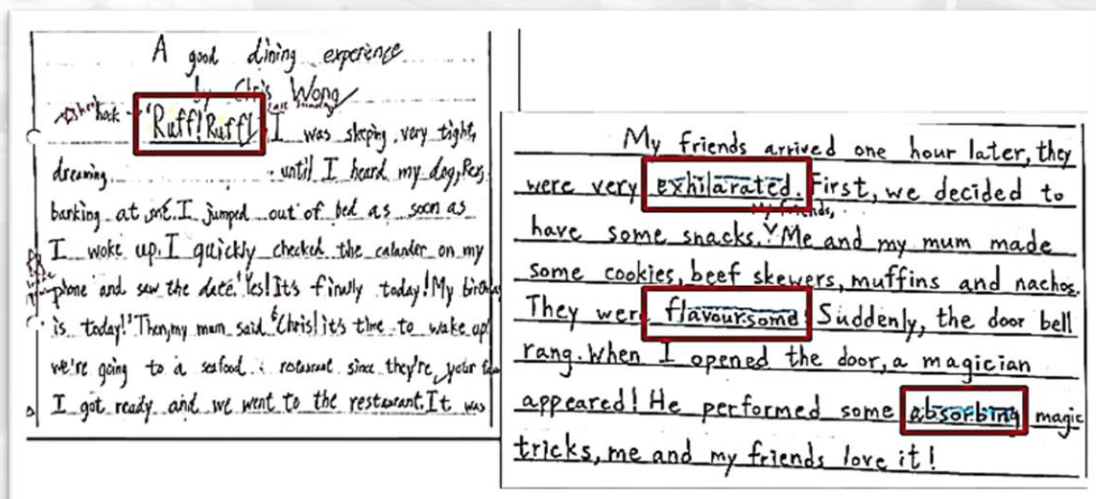 A good dining experience
by Chris Wong
hook
'Ruff!'Ruff! I was sleping very tight,
dreaming until I heard my dog, Rex
barking at me. I jumped out of bed as soon as
I woke up. I quickly checked the calander on my
phone and saw the date. 'Yes! It's finally today! My birthday
is today!' Then, my mum said 'Chris! it's time to wake up!
we're going to a seafood restaurant since they're your
I got ready and we went to the restaurant. It was
My friends arrived one hour later, they
were very exhilarated. First, we decided to
My friends,
have some snacks. Me and my mum made
some cookies, beef skewers, muffins and nachos.
They were flavoursome! Suddenly, the door bell
rang. When I opened the door, a magician
appeared! He performed some absorbing magic
tricks, me and my friends love it!